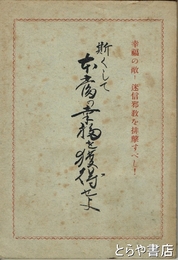 幸福の敵!迷信邪教を排撃すべし!
斯くして
本当の幸福を獲得せよ
とらや書店